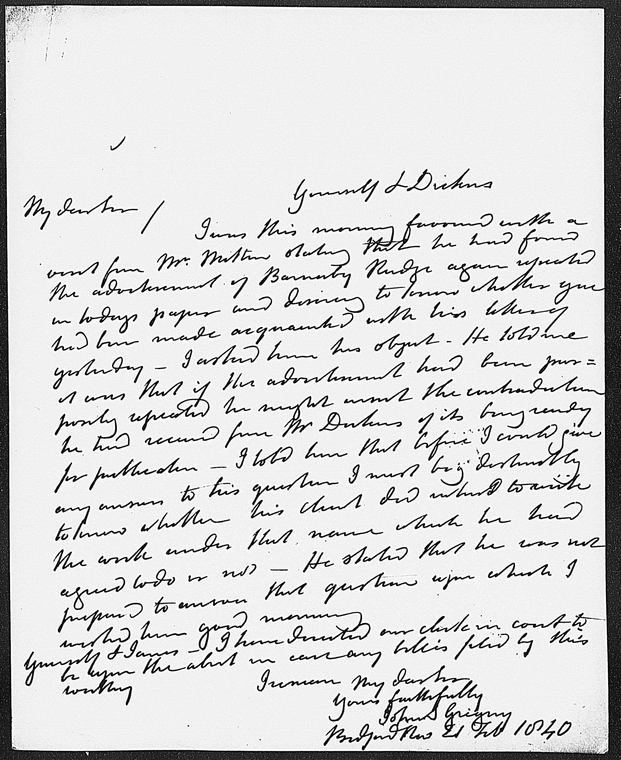 Yourself & Dickens
My dear Sir /
I was this morning favoured with a
visit from Mr. Mitton stating that he had found
the advertisement of Barnaby Rudge again repeated
in todays paper and desiring to know whether you
had been made acquainted with his letter of
yesterday – I asked him his object – He told me
it was that if the advertisement had been pur=
posely repeated he might insert the contradiction
he had received from Mr Dickens of its being ready
for publication – I told him that before I could give
any answer to his question I must beg distinctly
to know whether his client did intend to write
the work under that name which he had
agreed to do or not – He stated that he was not
prepared to answer that question upon which I
wished him good morning
Yourself & – I have directed our clerk in court to
be upon the alert in case any bill is filed by this
worthy
I remain My dear Sir
Yours faithfully
John Gregory
Bedford Row 21 Feb 1840